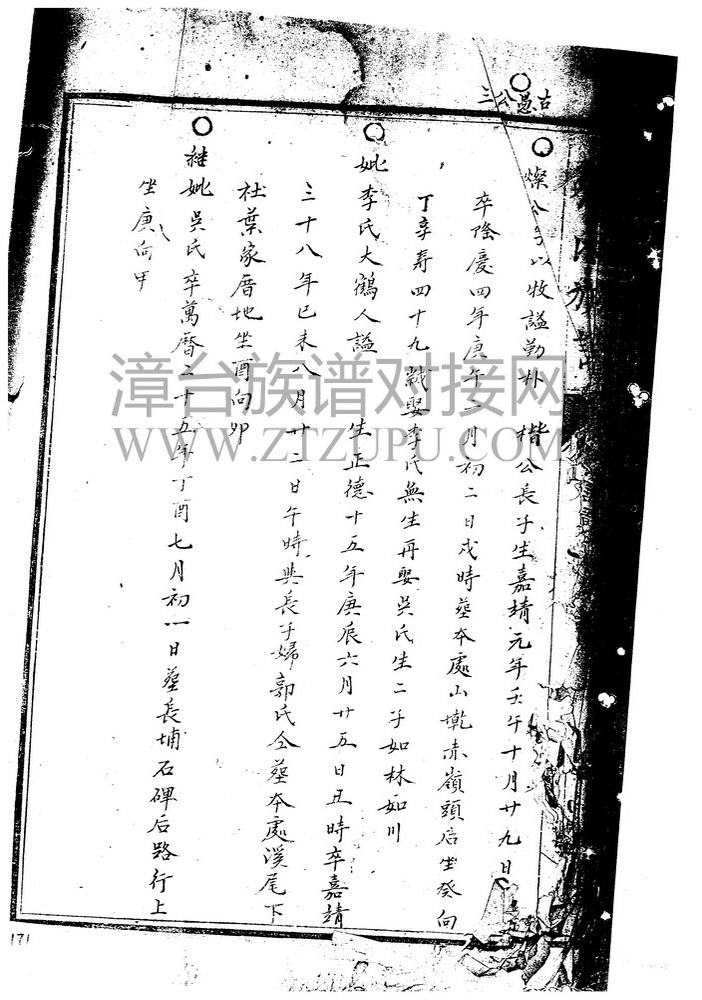 古愚公三
燦公字以牧謚勤朴 楷公長子生嘉靖元年壬午十月廿九日
卒隆慶四年庚午二月初二日戌時葬本處山墘赤嶺頭后坐癸向
丁享寿四十九歲娶李氏無生再娶吳氏生二子如林如川
妣李氏大鶴人謚 生正德十五年庚辰六月廿五日丑時卒嘉靖
三十八年己未八月廿二日午時與長子婦郭氏仝葬本處溪尾下
社葉家厝地坐酉向卯
継妣吳氏卒萬曆二十五年丁酉七月初一日葬長埔石碑后路行上
坐庚向甲
漳台族谱对接网
WWW.ZTZUPU.COM
171